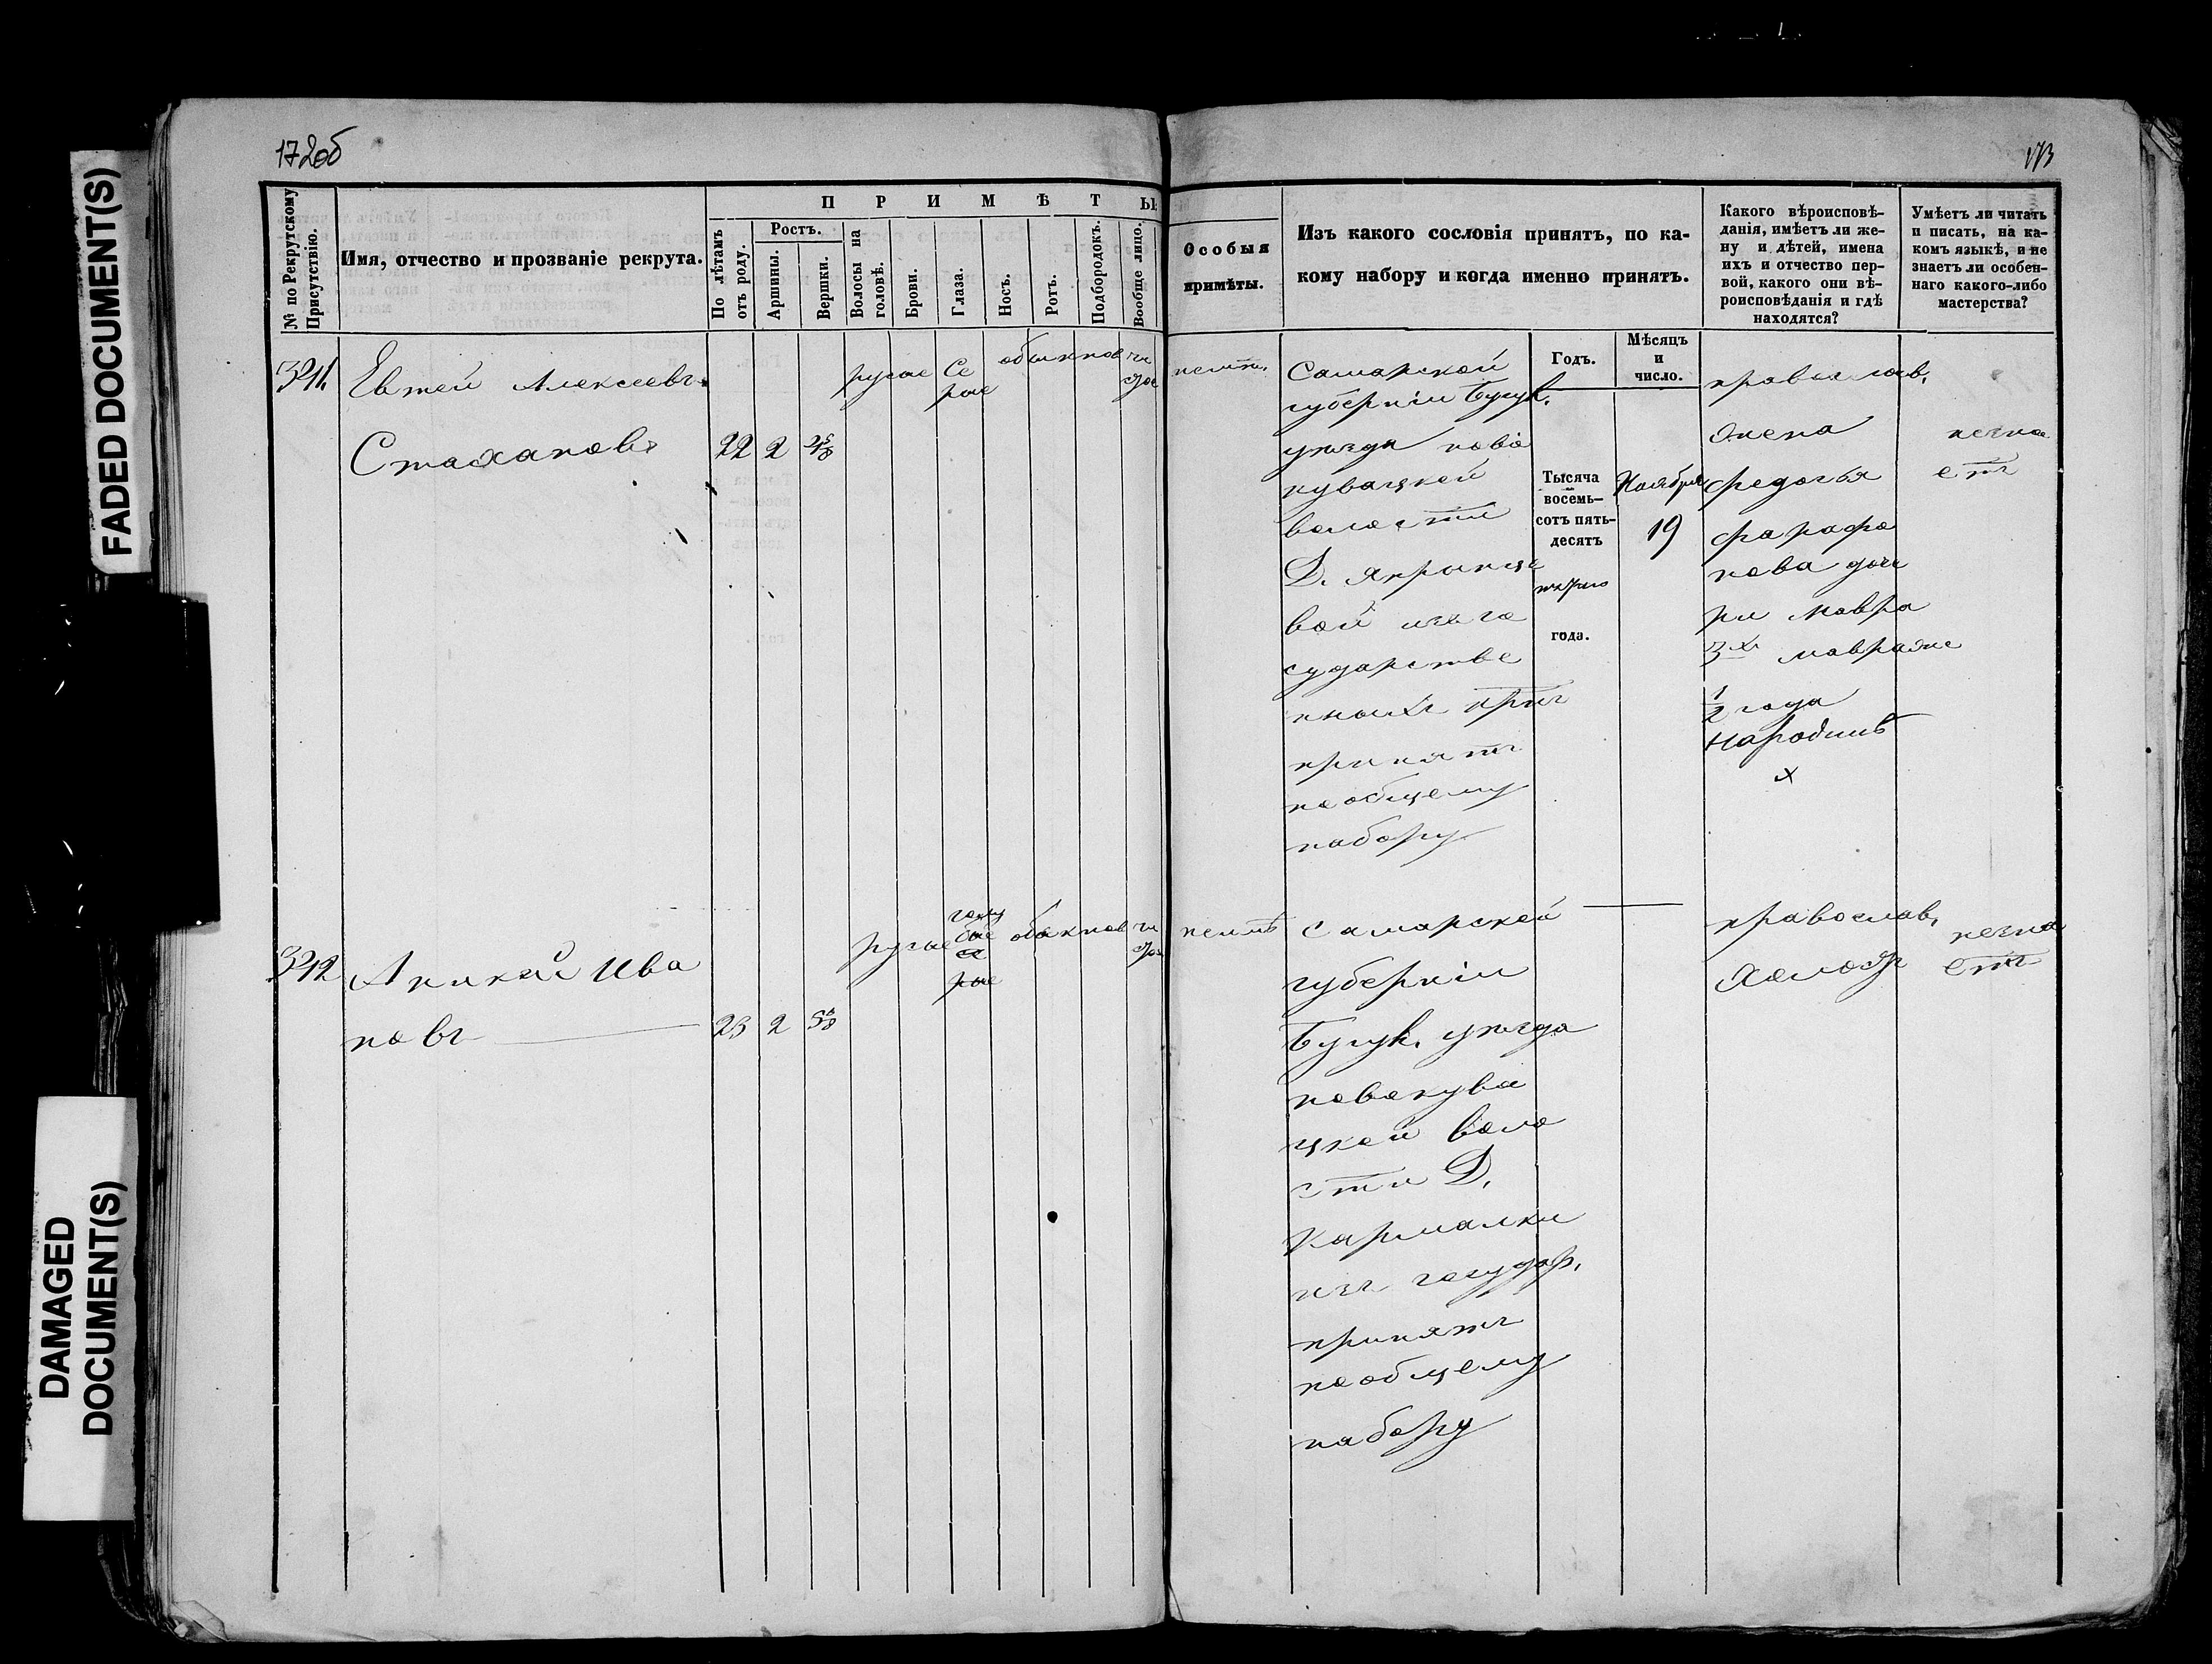 FADED DOCUMENT(S)
DAMAGED
DOCUMENT(S)
172об
173
№ по Рекрутскому
Присутствію.
Имя, отчество и прозваніе рекрута.
ПРИМѢТЫ.
По лѣтамъ
отъ роду.
Ростъ.
Аршины.
Вершки.
Волосы на
головѣ.
Брови.
Глаза.
Носъ.
Ротъ.
Подбородокъ.
Вообще лицо.
Особыя
примѣты.
Изъ какого сословія принятъ, по ка-
кому набору и когда именно принятъ.
Годъ.
Мѣсяцъ
и
число.
Какого вѣроисповѣ-
данія, имѣетъ ли же-
ну и дѣтей, имена
ихъ и отчество пер-
вой, какого они вѣ-
роисповѣданія и гдѣ
находятся?
Умѣетъ ли читать
и писать, на ка-
комъ языкѣ, и не
знаетъ ли особен-
наго какого-либо
мастерства?
341.
Евтей Алексеевъ
Стахановъ
22 2 4 5/8
русые
Се
рые
обыкнов
чи
стое
нетъ.
Самарской
губерніи Бугул.
уезда ново
кувацкой
волости
Д.
вой изъ го
сударстве
нныхъ крт
принятъ
по общему
набору
Тысяча
восемь-
сотъ пять-
десятъ
года.
Ноября
19
православ.
Жена
Федосья
фарафо
нова доче
ри мавра
3хъ мавра же
1/2 года
на родинѣ
незна
етъ
342
Аникей Ива
новъ
23 2
русые
голу
бые
се
рые
обыкнов
чи
стое
неимѣ
Самарской
губерніи
Бугул. уезда
новокува
цкой воло
сти Д.
Кармалки
изъ государ.
принятъ
по общему
набору
православ.
Холостъ
незна
етъ